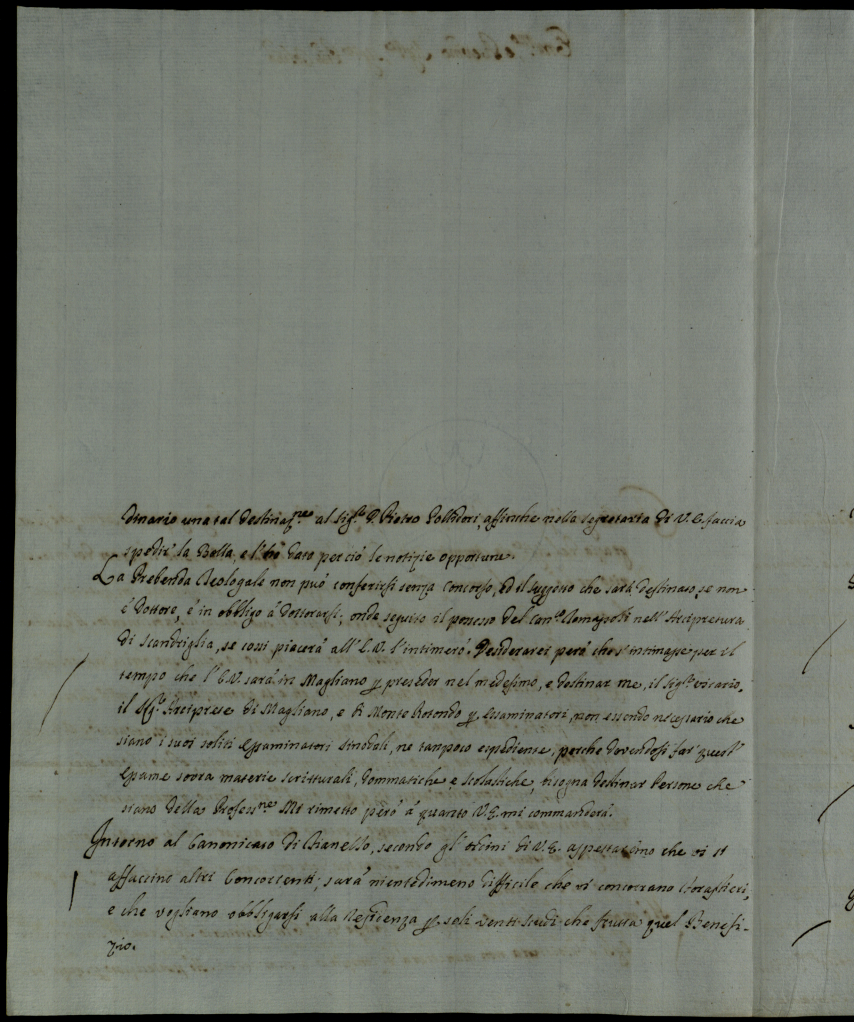 dinario una tal destinaz.ne al Sig.r D. Pietro Pollidori, affinche nella segretaria di V.E. faccia
spedir la Bolla, e l'hò dato perciò le notizie opportune.
La Prebenda Teologale non può conferirsi senza Concorso, ed il soggetto che sarà destinato, se non
è Dottore, è in obbligo à dottorarsi; onde seguito il possesso del Can.co nell'Arcipretura
di Scandriglia, se cossì piacerà all'E.V. l'intimerò. Desiderarei però che s'intimasse per il
tempo che l'E.V. sarà in Magliano p. preseder nel medesimo, e destinar me, il Sig.r vicario,
il Sig.r Arciprese di Magliano, e di Monte Rotondo p. Essaminatori, non essendo necessario che
siano i suoi soliti Essaminatori Sinodali, ne tampoco espediente, perche dovendosi far quest'
Esame sovra materie scritturali, dommatiche e scolastiche, bisogna destinar Persone che
siano della Profess.ne Mi rimetto però à quanto V.E. mi commanderà.
Intorno al Canonicato di secondo gl'ordini di V.E. aspettaremo che vi si
affaccino altri Concorrenti; sarà nientedimeno difficile che vi concorrano Forastieri,
e che vogliano obbligarsi alla Residenza p. soli venti scudi che frutta quel Benefi-
zio.